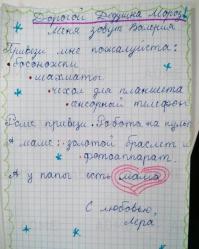 Дорогой Дедушка Мороз!
Меня зовут Валерия
Привези мне пожалуйста:
• босоножки
• шахматы
• чехол для планшета
• сенсорный телефон
Роме привези • Робота на пульт
А маме: золотой браслет и
• фотоаппарат
А у папы есть мама
С любовью,
Лера